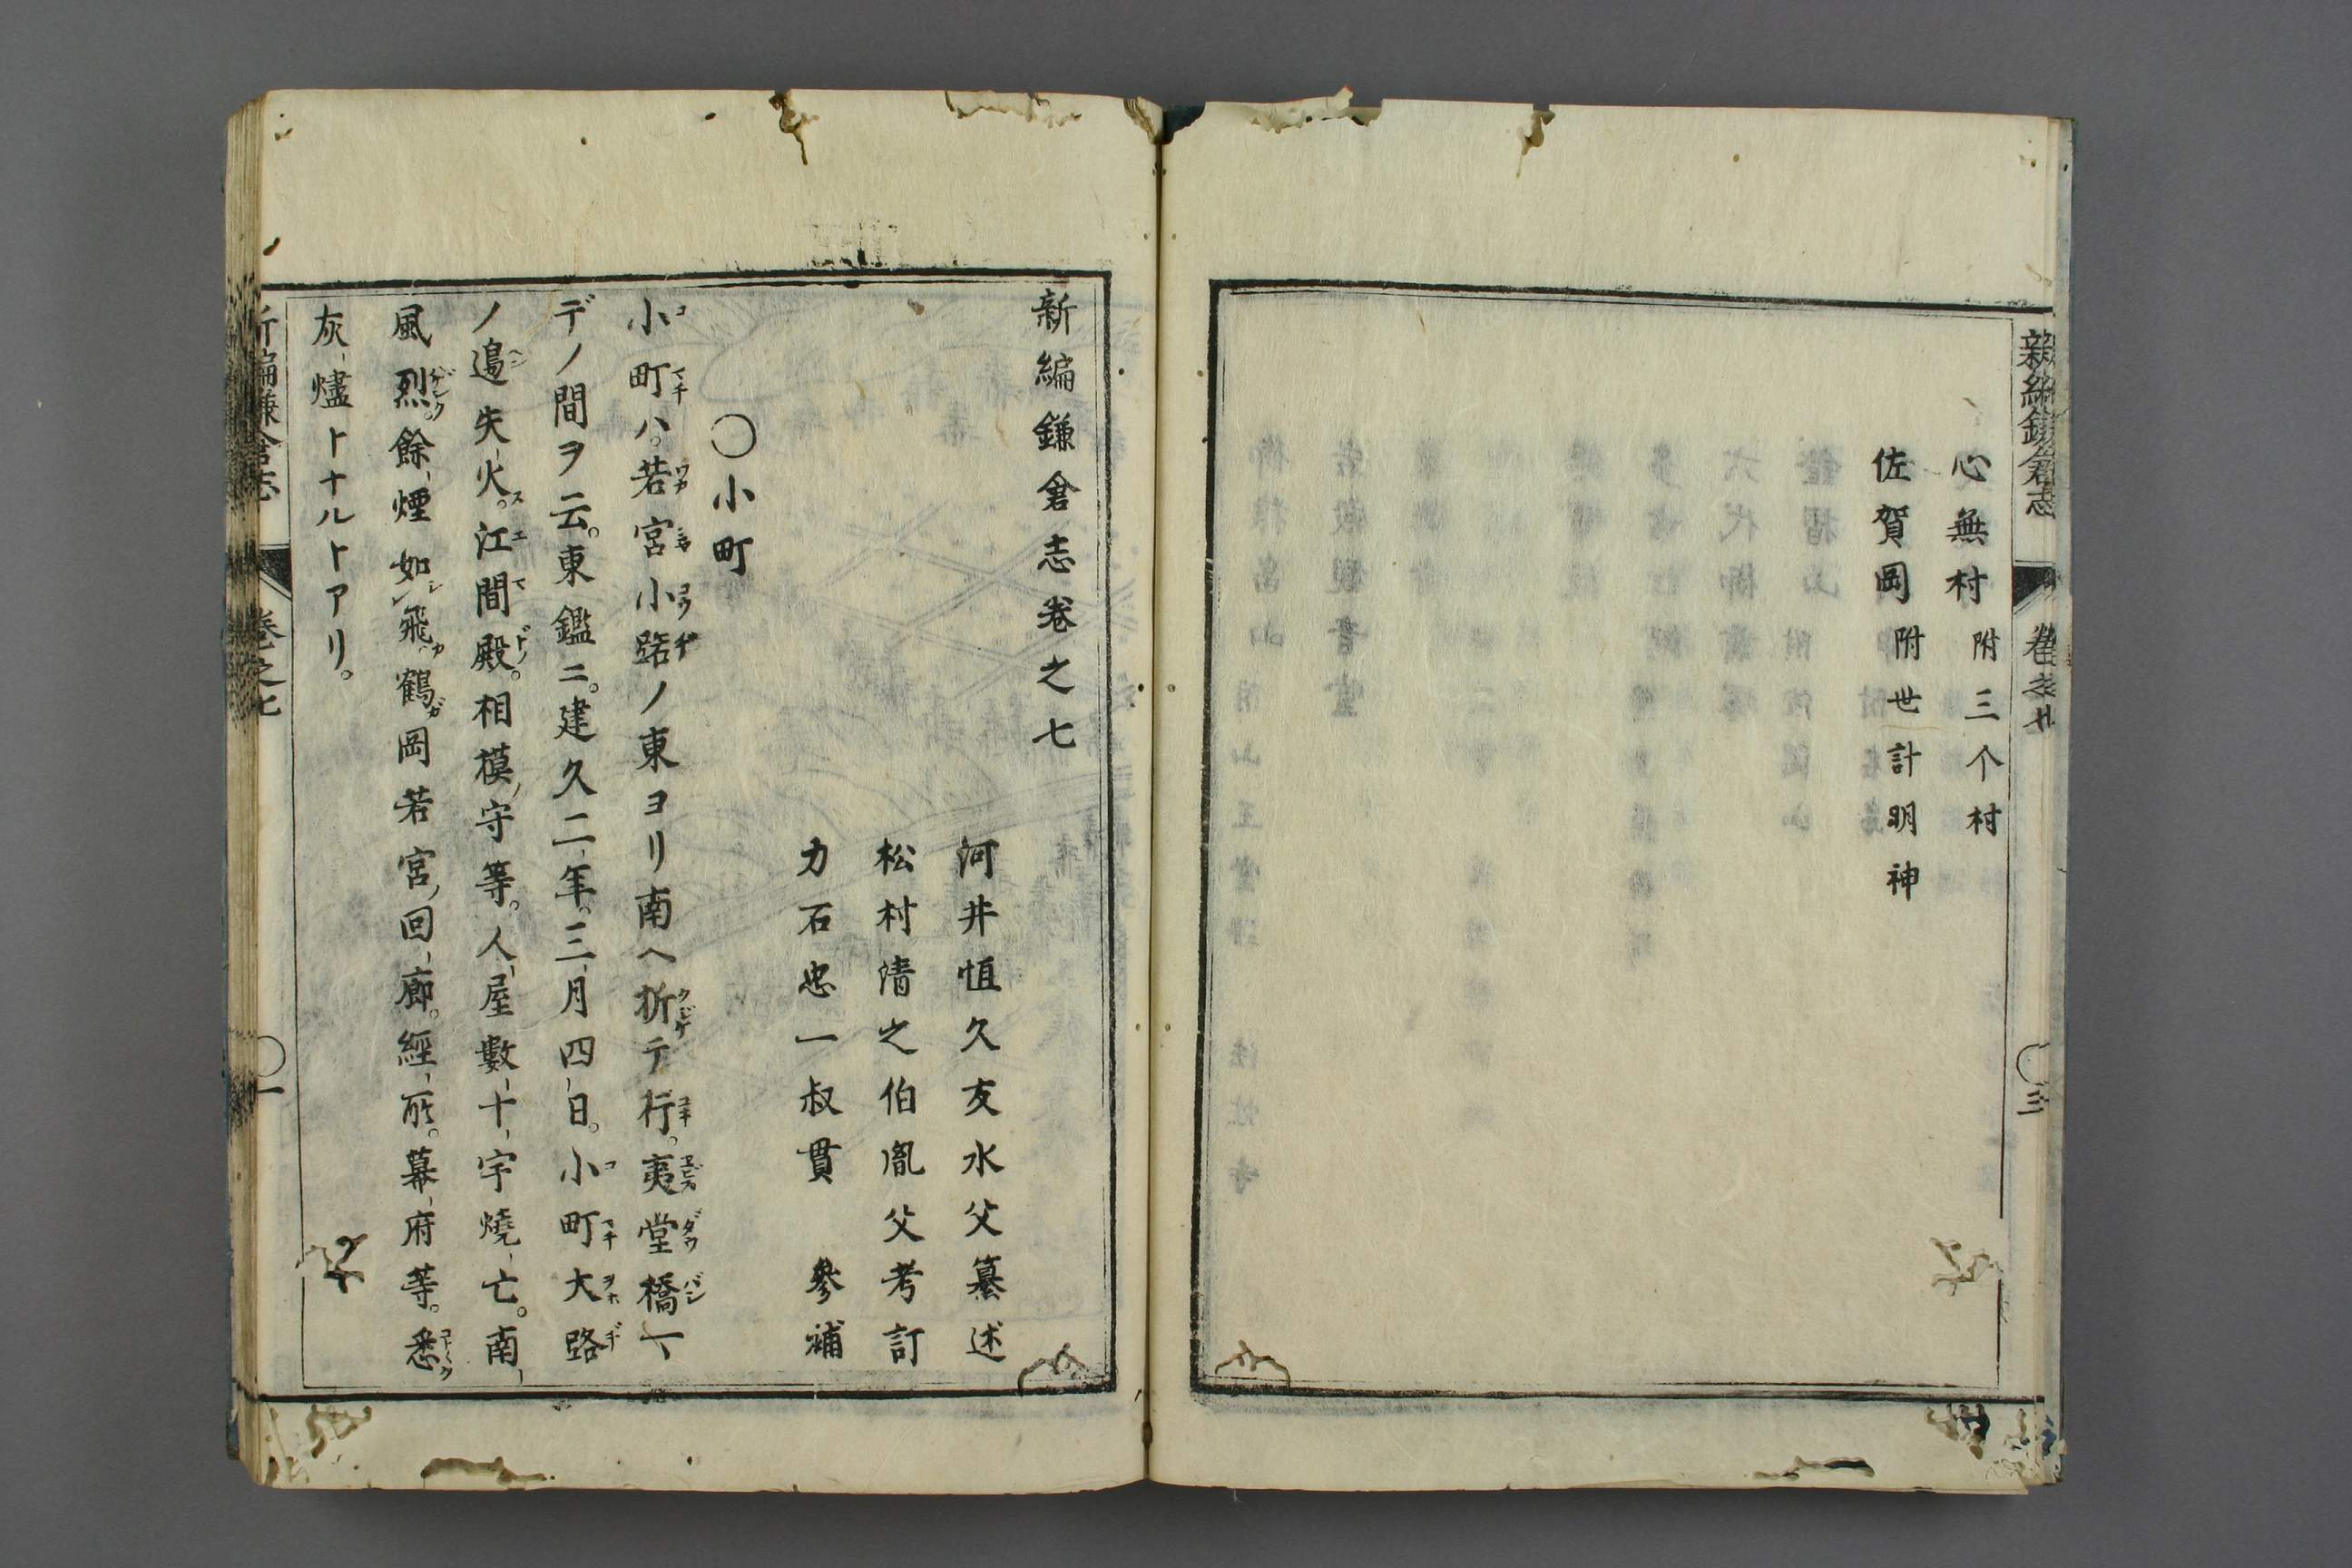 新編鎌倉志
心無村 附三个村
佐賀岡 附世計明神
新編鎌倉志卷之七
河井恒久友水父纂述
松村清之伯胤父考訂
力石忠一叔貫 參補
〇小町
小町ハ。若宮小路ノ東ヨリ南ヘ折テ行。夷堂橋マ
デノ間ヲ云。東鑑ニ。建久二年。三月四日。小町大路
ノ邊失火。江間殿。相模守等。人屋數十宇燒亡。南
風烈。餘煙如飛。鶴岡若宮。回廊。經所。幕府等。悉
灰燼トナルトアリ。
新編鎌倉志 卷之七 〇一